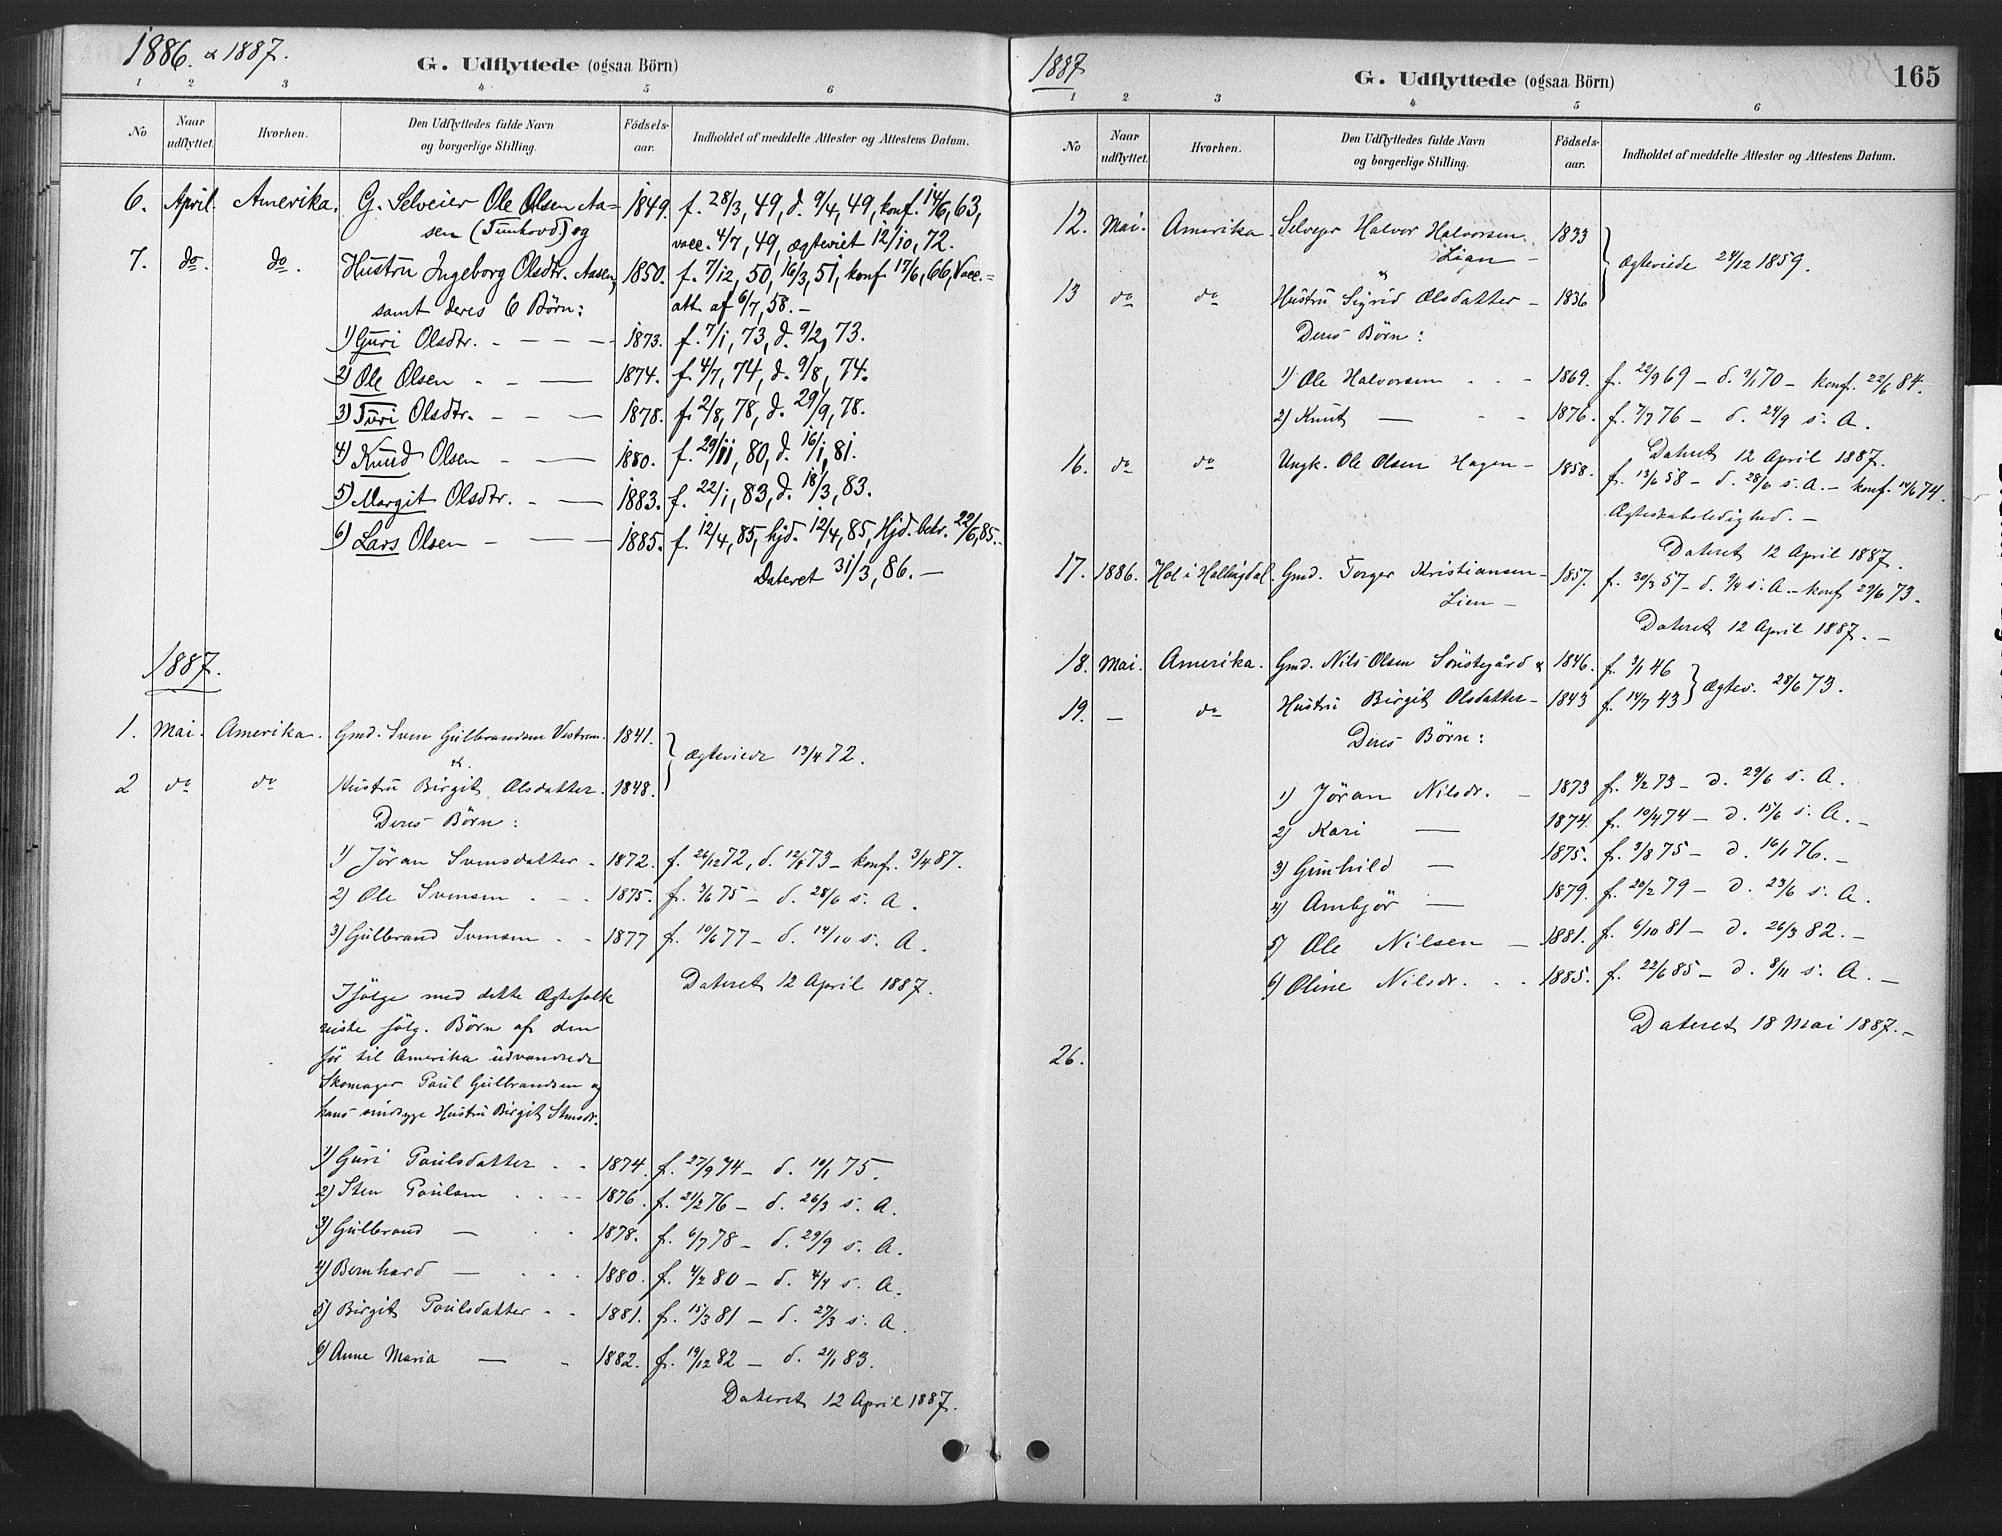 1886. & 1887.
G. Udflyttede (ogsaa Börn)
1 2 3 4 5 6
No Naar udflyttet. Hvorhen. Den Udflyttedes fulde Navn og borgerlige Stilling. Födsels-aar. Indholdet af meddelte Attester og Attestens Datum.
6. April. Amerika. G. Selveier Ole Olsen Aa= 1849. f. 28/3, 49, d. 9/4, 49, konf. 14/6, 63,
sen (Tunhovd.) og vacc. 4/7, 49, ægteviet 12/10, 72.
7. do. do. Hustru Ingeborg Olsdtr. Aasen, 1850. f. 7/12, 50, 16/3, 51, konf 17/6, 66, Vacc.=
samt deres 6 Børn: att. af 6/7, 58. –
1) Guri Olsdtr. - – – – 1873. f. 7/1, 73, d. 9/2, 73.
2) Ole Olsen - - — 1874. f. 4/7, 74, d. 9/8, 74.
3) Turi Olsdtr. - — 1878. f. 2/8, 78, d. 29/9, 78.
4) Knud Olsen - — 1880. f. 29/11, 80, d. 16/1, 81.
5) Margit Olsdtr. - — 1883. f. 22/1, 83, d. 18/3, 83.
6) Lars Olsen - — 1885. f. 12/4, 85, hjd. 12/4, 85, Hjd. bekr. 22/6, 85.-
Dateret 31/3, 86. —
1887.
1. Mai. Amerika. Gmd. Sven Gulbrandsen 1841.
& } Ægteviede 13/4 72.
2 do do Hustru Birgit Olsdatter. 1848.
Deres Börn:
1) Jöran Svensdatter - 1872. f. 26/12 72, d. 73 – konf. 3/4 87.
2) Ole Svensen - - 1875. f. 3/6 75 – d. 28/6 s. A.
3) Gulbrand Svensen - - 1877 f. 10/6 77 – d. 14/10 s. A.
Dateret 12 April 1887.
Ifølge med dette Ægtefolk
reiste følg. Börn af den
før til Amerika udvandrede
Skomager Paul Gulbrandsen og
hans sindsyge Hustru Birgit Stensdr.
1) Guri Paulsdatter - - 1874. f. 27/9 74 – d. 10/1 75.
2) Sten Paulsen - - - 1876. f. 21/2 76 – d. 26/3 s. A.
3) Gulbrand — - - 1878. f. 6/7 78 – d. 29/9 s. A.
4) Bernhard — - - - 1880. f. 4/2 80 – d. 4/4 s. A.
5) Birgit Paulsdatter - - 1881. f. 15/3 81 – d. 27/3 s. A.
6) Anne Maria — - 1882. f. 19/12 82 – d. 21/1 83.
Dateret 12 April 1887.
1887
G. Udflyttede (ogsaa Börn)
165
1 2 3 4 5 6
No Naar udflyttet. Hvorhen. Den Udflyttedes fulde Navn og borgerlige Stilling. Födsels-aar. Indholdet af meddelte Attester og Attestens Datum.
12. Mai. Amerika. Selveier Halvor Halvorsen 1833
Lian – } Ægteviede 24/12 1859.
&
13 do do Hustru Sigrid Olsdatter – 1836
Deres Börn:
1) Ole Halvorsen - - - 1869. f. 22/9 69 – d. 9/1 70 – konf. 22/6 84.
2) Knut — - - 1876. f. 7/7 76 – d. 24/9 s. A.
Dateret 12 April 1887.
16. do do Ungk. Ole Olsen Hagen – 1858. f. 13/6 58 – d. 28/6 s. A. – konf. 14/6 74.
Ægteskabsledighed. –
Dateret 12 April 1887.
17. 1886. Hol i Hallingdal. Gmd. Torger Kristiansen – 1857. f. 30/3 57 – d. 9/4 s. A. – konf 29/6 73.
Lien –
Dateret 12 April 1887. –
18. Mai. Amerika. Gmd. Nils Olsen Sönstegård & 1846. f. 3/1 46
} Ægtev. 28/6 73.
19. – do Hustru Birgit Olsdatter – 1843 f. 14/7 43
Deres Börn:
1) Jöran Nilsdr. – 1873 f. 4/2 73 – d. 29/6 s. A.
2) Kari — 1874. f. 10/4 74 – d. 15/6 s. A. –
3) Gunhild — 1875. f. 3/8 75 – d. 16/1 76. –
4) Ambjör — 1879. f. 20/2 79 – d. 23/6 s. A.
5) Ole Nilsen – 1881. f. 6/10 81 – d. 26/3 82. –
6) Oline Nilsdr. - - 1885. f. 22/6 85 – d. 8/11 s. A. –
Dateret 18 Mai 1887. –
26.